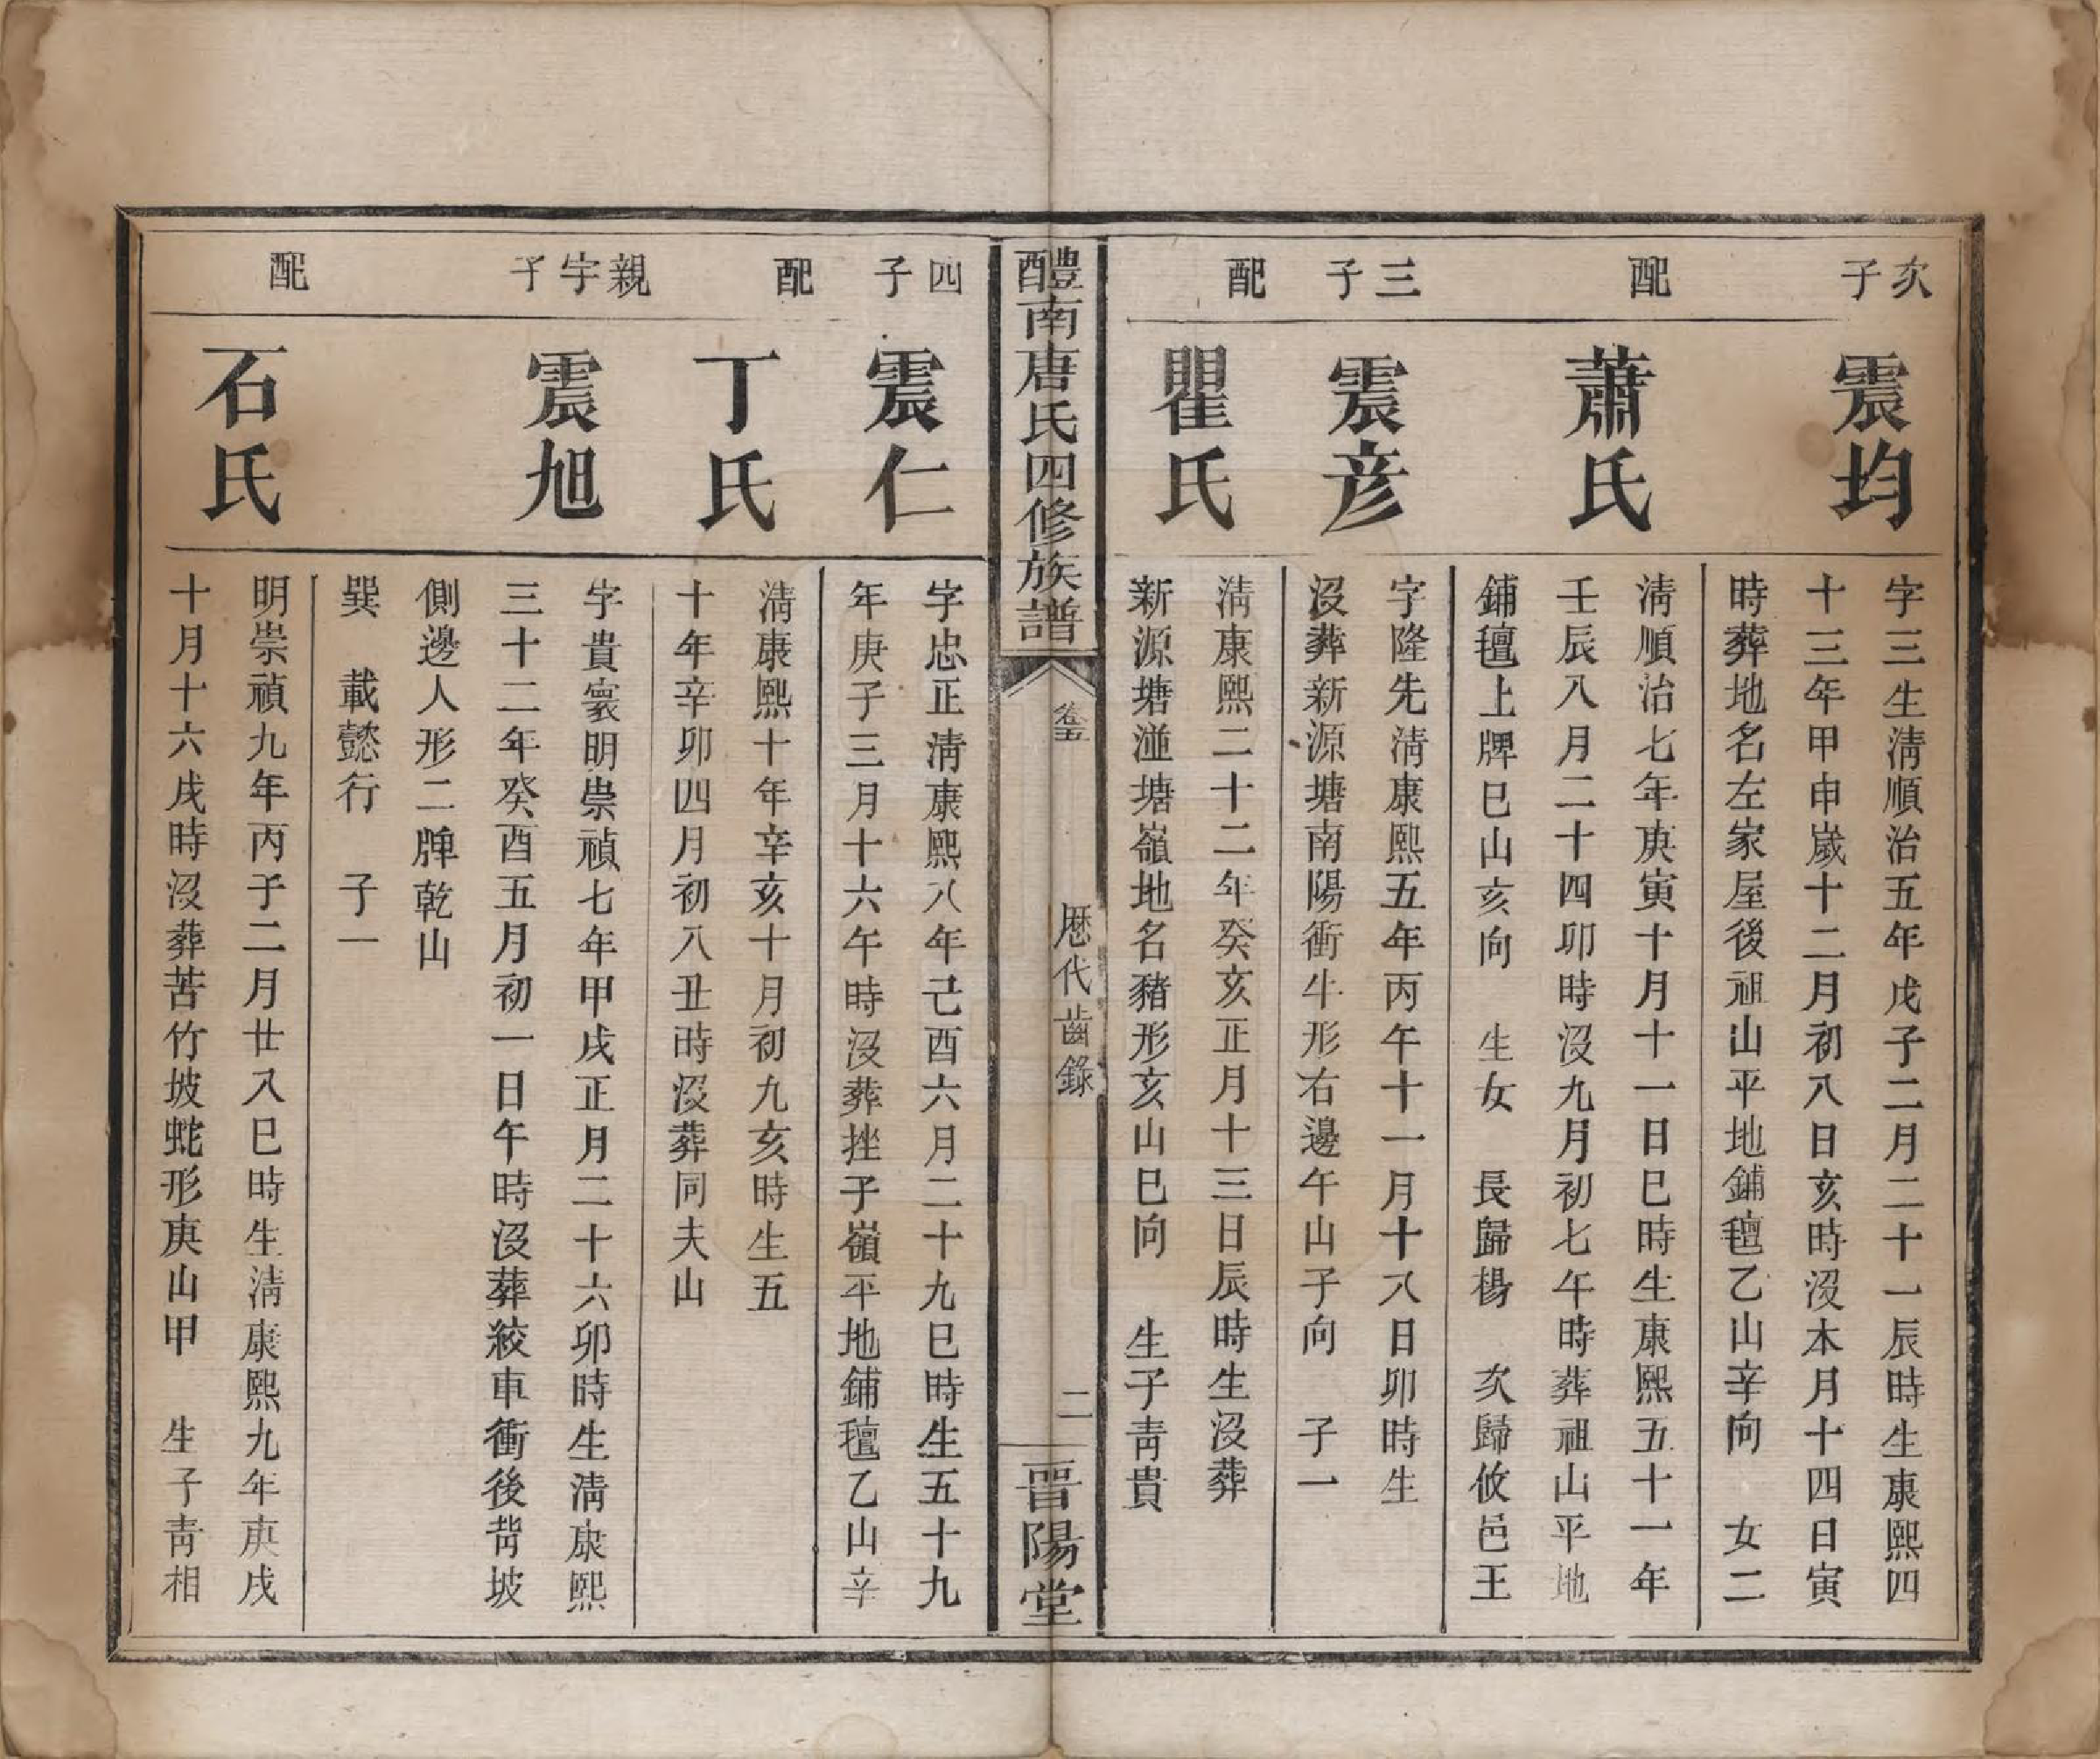 次子
震均
字三生清順治五年戊子二月二十一辰時生康熙四
十三年甲申歲十二月初八日亥時沒本月十四日寅
時葬地名左家屋後祖山平地鋪氊乙山辛向　女二
配
蕭氏
清順治七年庚寅十月十一日巳時生康熙五十一年
壬辰八月二十四卯時沒九月初七午時葬祖山平地
鋪氊上牌巳山亥向　生女　長歸楊　次歸攸邑王
三子
震彦
字隆先清康熙五年丙午十一月十八日卯時生
沒葬新源塘南陽衝牛形右邊午山子向　子一
配
瞿氏
清康熙二十二年癸亥正月十三日辰時生沒葬
新源塘湴塘嶺地名豬形亥山巳向　生子青貴
醴南唐氏四修族譜
卷五
歷代齒錄
二
晉陽堂
四子
震仁
字忠正清康熙八年己酉六月二十九巳時生五十九
年庚子三月十六午時沒葬挫子嶺平地鋪氊乙山辛
配
丁氏
清康熙十年辛亥十月初九亥時生五
十年辛卯四月初八丑時沒葬同夫山
親宇子
震旭
字貴寰明崇禎七年甲戌正月二十六卯時生清康熙
三十二年癸酉五月初一日午時沒葬絞車衝後背坡
側邊人形二牌乾山
巽　載懿行　子一
配
石氏
明崇禎九年丙子二月廿八巳時生清康熙九年庚戌
十月十六戌時沒葬苦竹坡蛇形庚山甲　生子青相